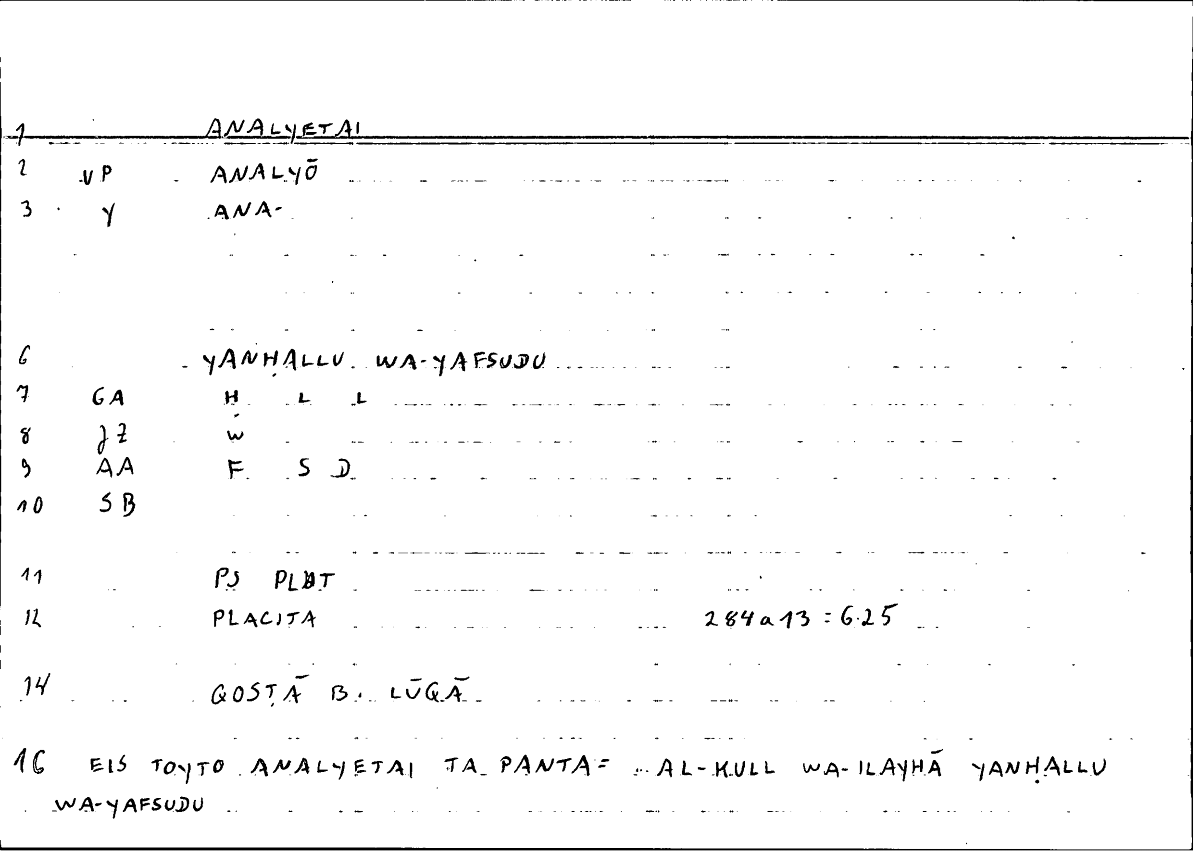 1 ANALYETAI
2 VP ANALYŌ
3 Y ANA-
6 YANḤALLU WA-YAFSUDU
7 GA Ḥ L L
8 JZ W
9 AA F S D
10 SB
11 PS PLUT
12 PLACITA 284a13 = 6.25
14 QOSṬĀ B. LŪQĀ
16 EIS TOYTO ANALYETAI TA PANTA = AL-KULL WA-ILAYHĀ YANḤALLU
WA-YAFSUDU